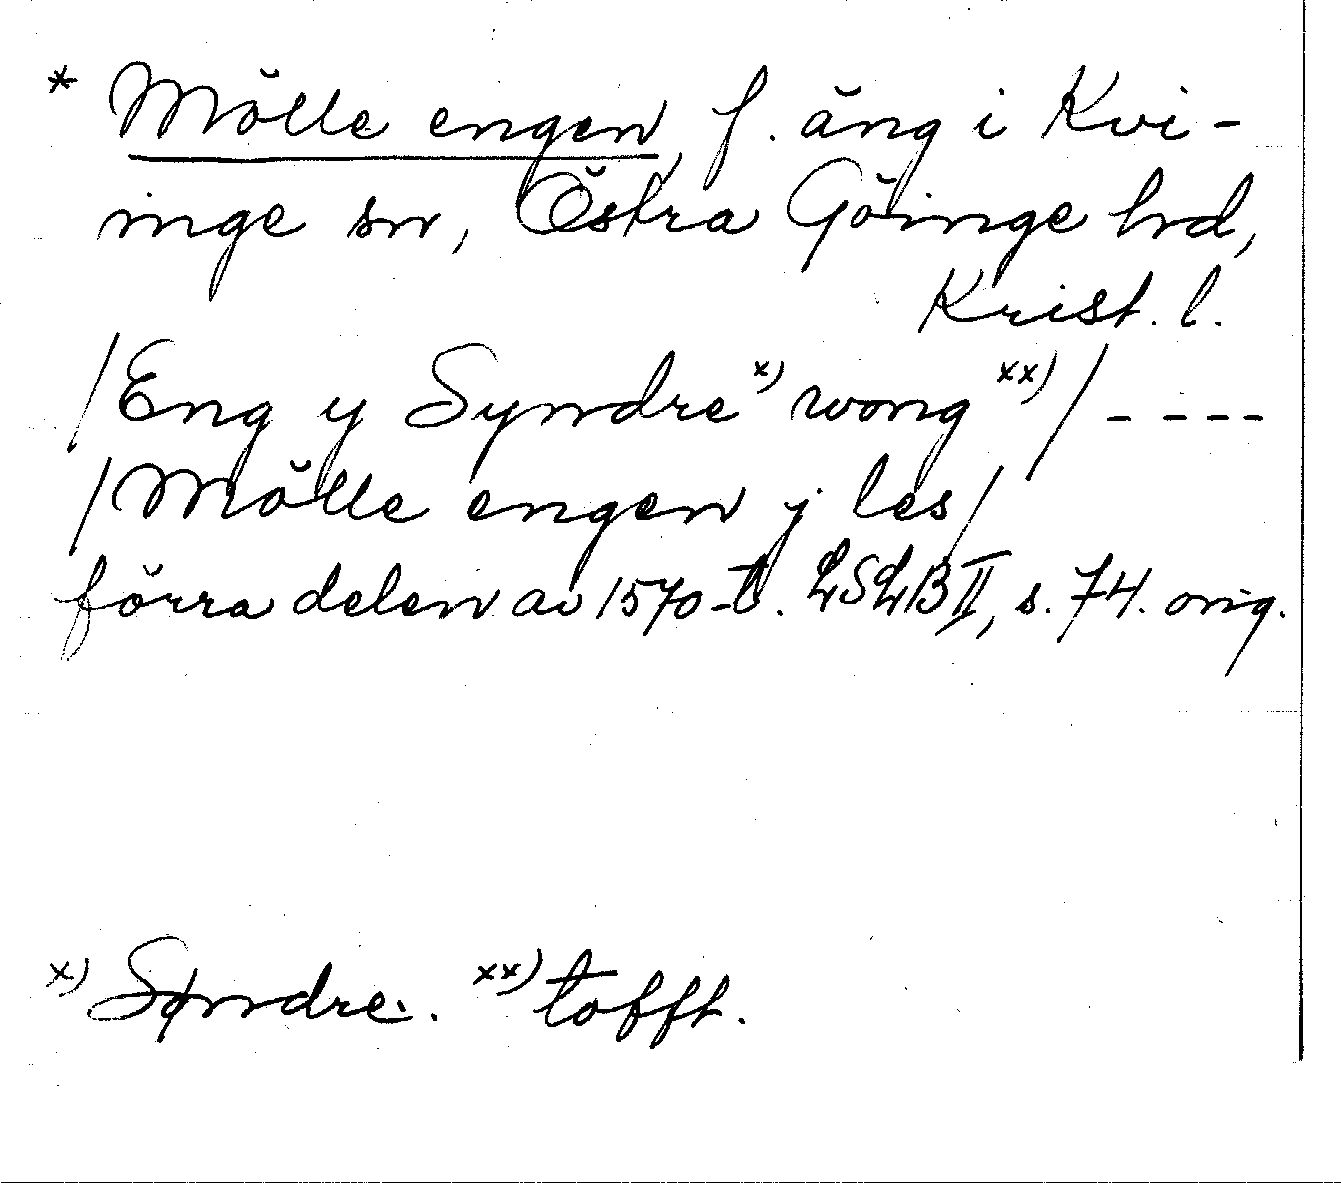 * Mölle engen, f. äng i Kvi-
inge sn, Östra Göinge hrd,
Krist. l.
/Eng y Syndre x) wong xx)/ - - - -
/Mölle engen j les/
förra delen av 1570-t. LSLB II, s. 74. orig.
x) Søndre. xx) tofft.